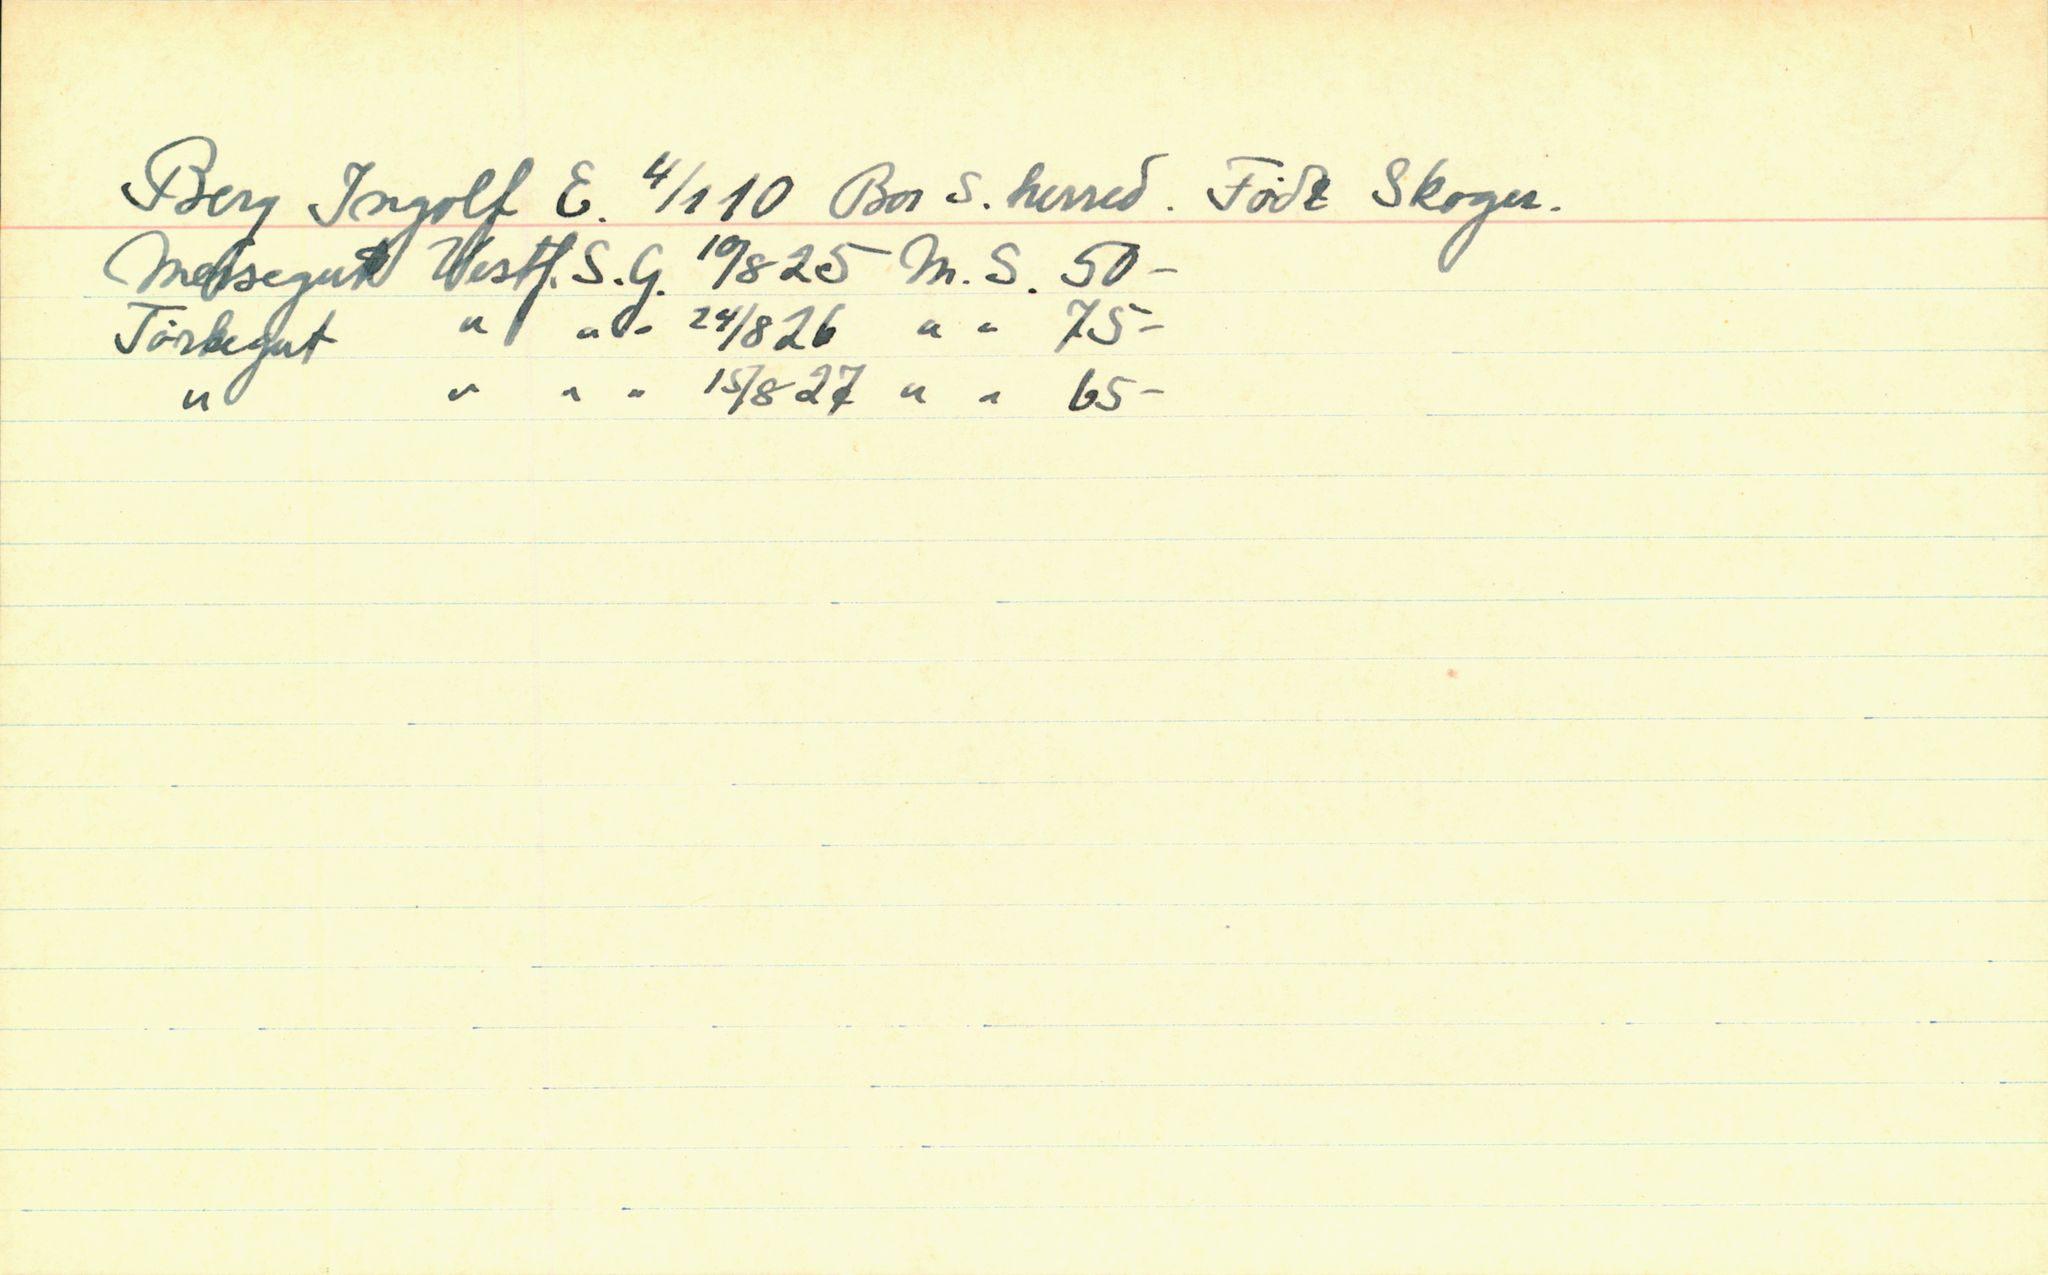 Berg Ingolf E. 4/1 10 Bor S. herred. Födt Skoger.
Messegut Vestf. S. G. 10/8 25 M. S. 50-
Törkegut " " " 24/8 26 " " 75-
" " " " 15/8 27 " " 65-